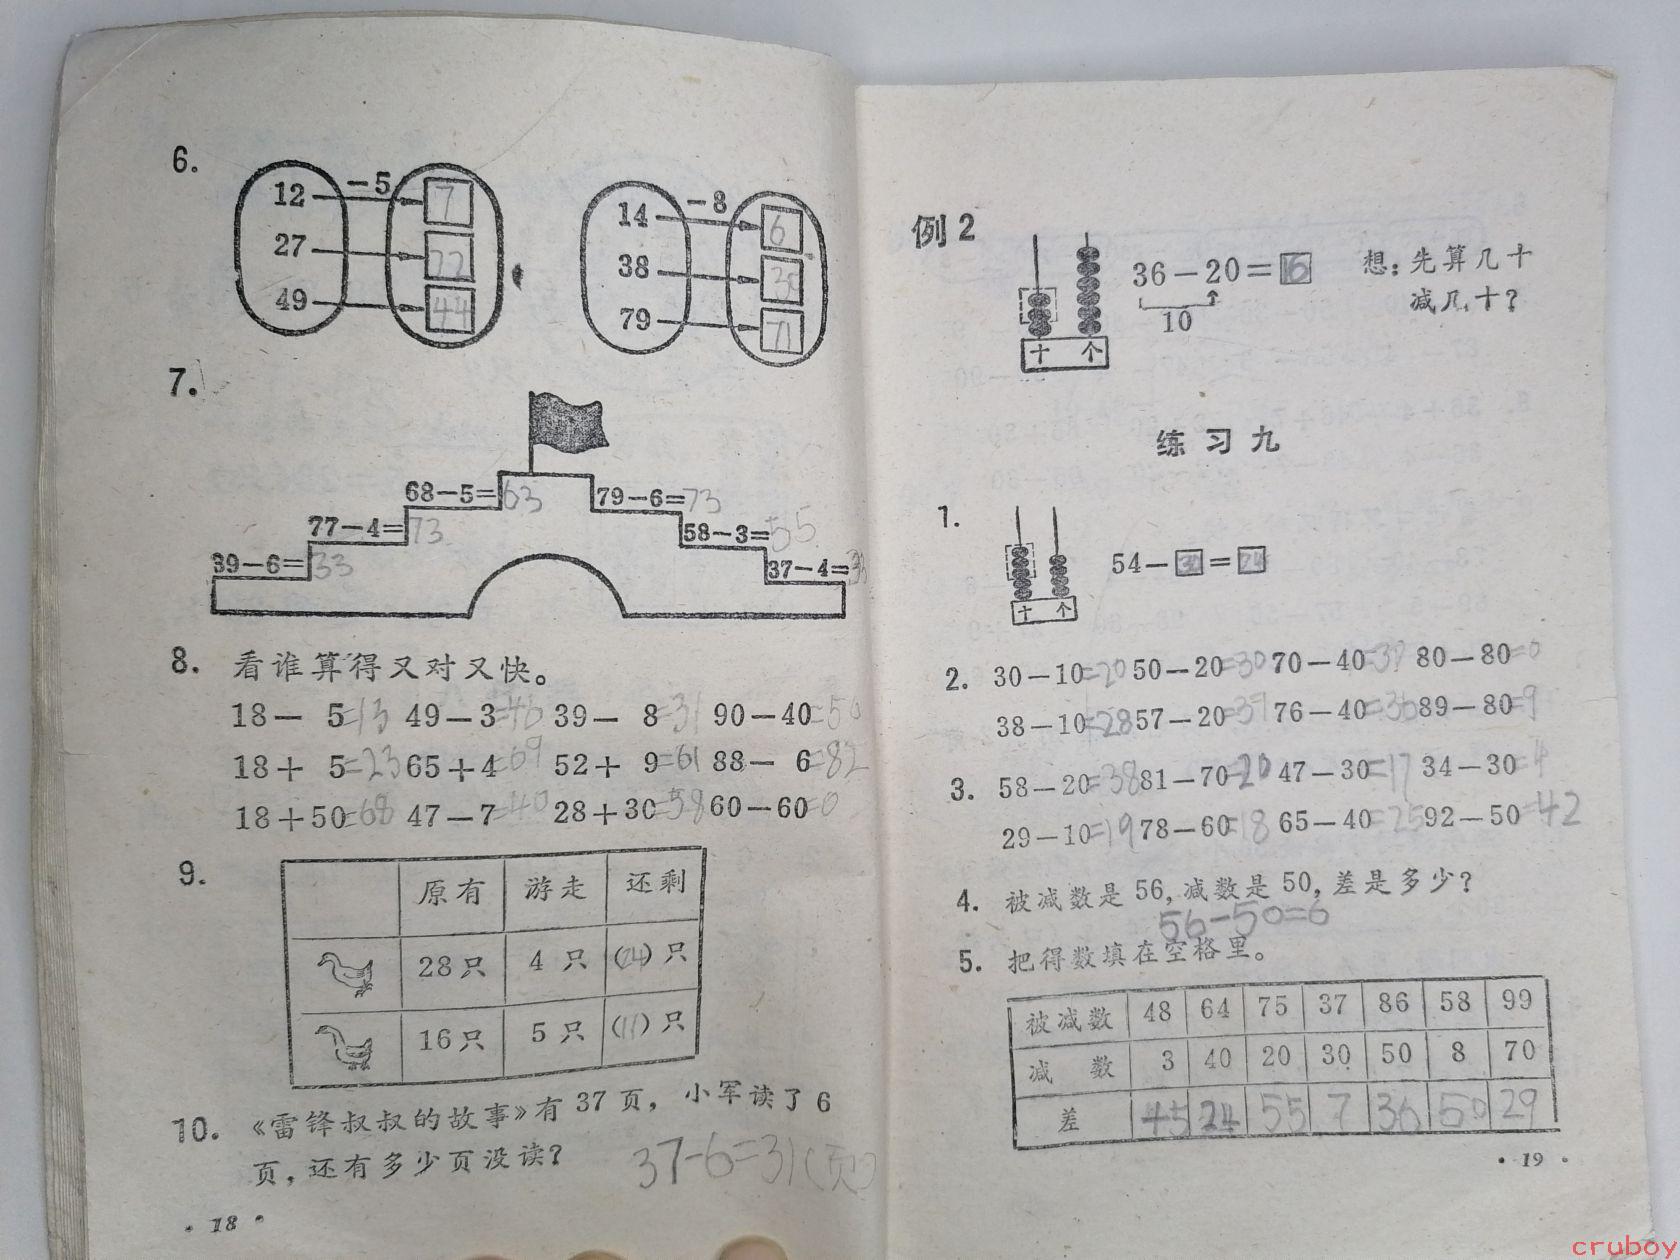 6.
12 －5 7
27 22
49 44
14 －8 6
38 30
79 71
7.
68－5=63 79－6=73
77－4=73 58－3=55
39－6=33 37－4=33
8. 看谁算得又对又快。
18－ 5=13 49－3=46 39－ 8=31 90－40=50
18＋ 5=23 65＋4=69 52＋ 9=61 88－ 6=82
18＋50=68 47－7=40 28＋30=58 60－60=0
9.
原有 游走 还剩
28只 4只 (24)只
16只 5只 (11)只
10. 《雷锋叔叔的故事》有37页，小军读了6
页，还有多少页没读？ 37-6=31(页)
· 18 ·
例2
36－20=16 想：先算几十
减几十？
10
十 个
练习九
1.
54－30=24
十 个
2. 30－10=20 50－20=30 70－40=37 80－80=0
38－10=28 57－20=37 76－40=36 89－80=9
3. 58－20=38 81－70=20 47－30=17 34－30=4
29－10=19 78－60=18 65－40=25 92－50=42
4. 被减数是56，减数是50，差是多少？
56-50=6
5. 把得数填在空格里。
被减数 48 64 75 37 86 58 99
减 数 3 40 20 30 50 8 70
差 45 24 55 7 36 50 29
· 19 ·
cruboy